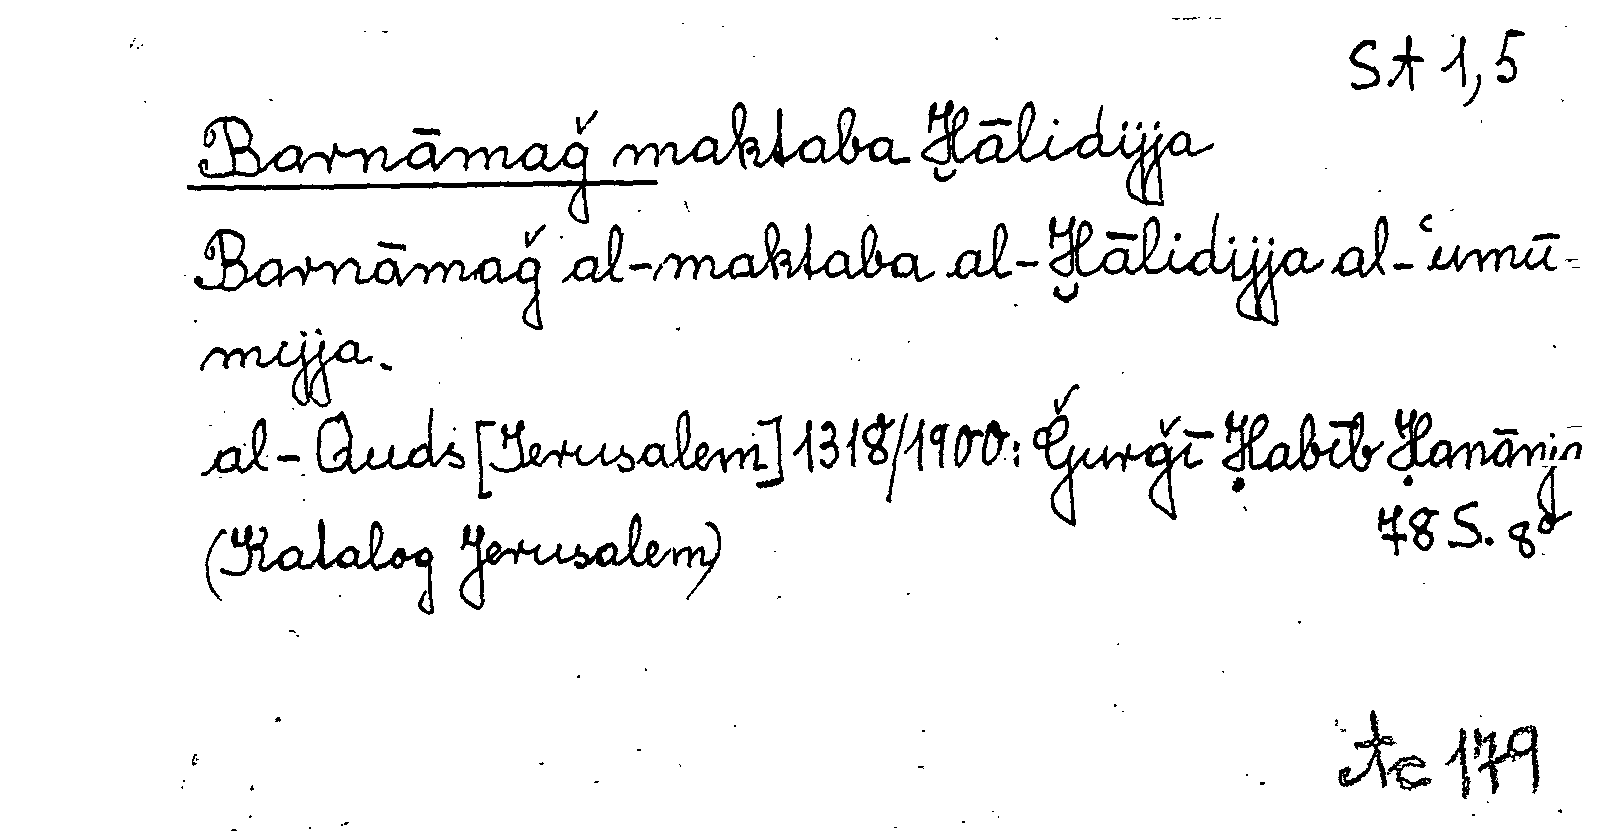 St 1,5
Barnāmaǧ maktaba Ḫālidijja
Barnāmaǧ al-maktaba al-Ḫālidijja al-ʿumū-
mijja.
al-Quds [Jerusalem] 1318/1900: Ǧurǧī Ḥabīb Ḥanānija
78 S. 8°
(Katalog Jerusalem)
Ac 179